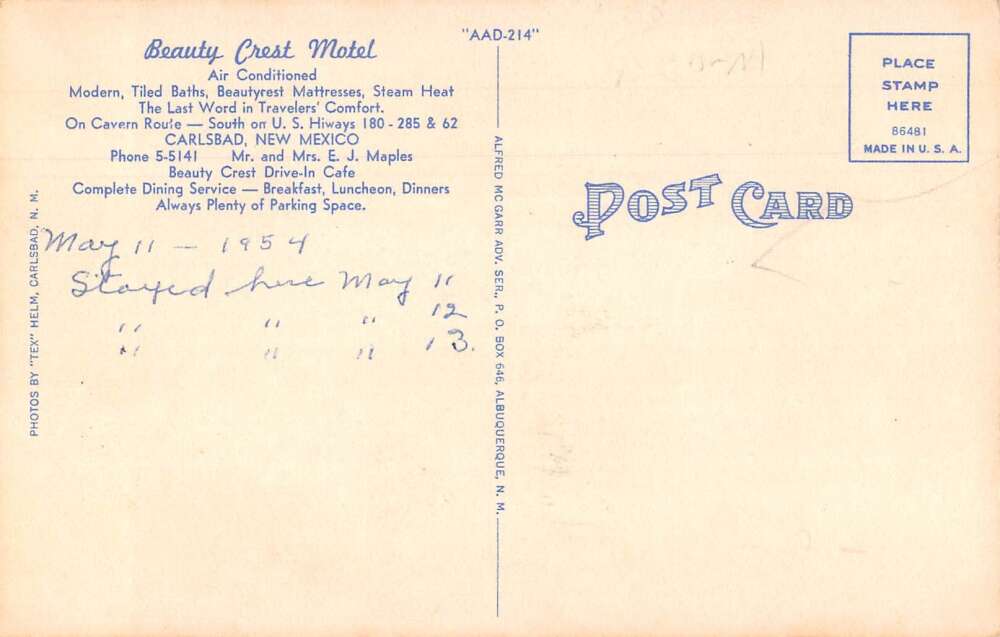 "AAD-214"
Beauty Crest Motel
Air Conditioned
Modern, Tiled Baths, Beautyrest Mattresses, Steam Heat
The Last Word in Travelers' Comfort.
On Cavern Route — South on U. S. Hiways 180 - 285 & 62
CARLSBAD, NEW MEXICO
Phone 5-5141 Mr. and Mrs. E. J. Maples
Beauty Crest Drive-In Cafe
Complete Dining Service — Breakfast, Luncheon, Dinners
Always Plenty of Parking Space.
May 11 — 1954
Stayed here May 11
" " " 12
" " " 13.
PHOTOS BY "TEX" HELM, CARLSBAD, N. M.
ALFRED MC GARR ADV. SER., P. O. BOX 646, ALBUQUERQUE, N. M.
POST CARD
PLACE
STAMP
HERE
86481
MADE IN U. S. A.